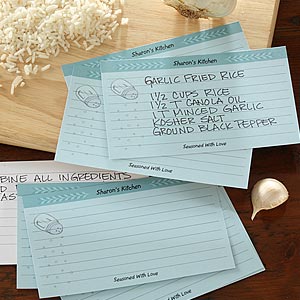 Sharon's Kitchen
Sharon's Kitchen
GARLIC FRIED RICE
1½ CUPS RICE
1½ T CANOLA OIL
1 T MINCED GARLIC
KOSHER SALT
GROUND BLACK PEPPER
Seasoned With Love
BINE ALL INGREDIENTS
Sharon's Kitchen
Seasoned With Love